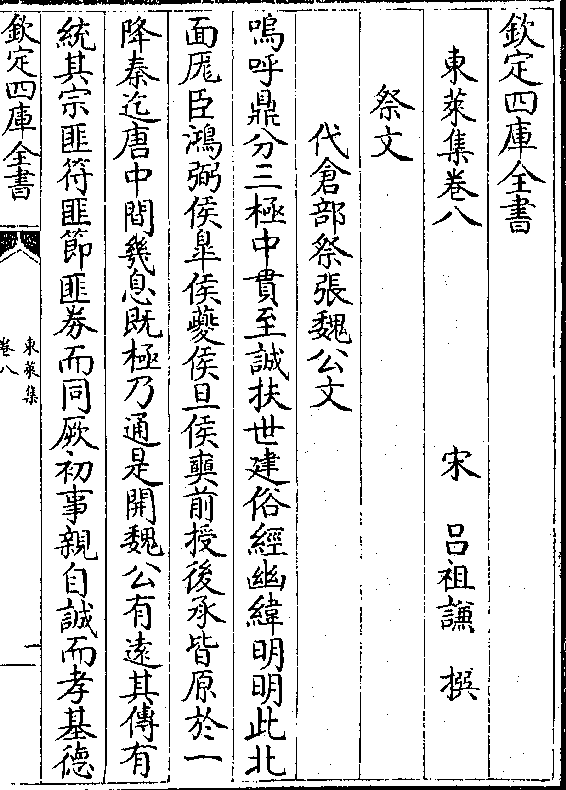 欽定四庫全書
東萊集卷八
宋 呂祖謙 撰
祭文
代倉部祭張魏公文
嗚呼鼎分三極中貫至誠扶世建俗經幽緯明明此北
面厖臣鴻弼侯臯侯夔侯旦侯奭前授後承皆原於一
降秦迄唐中間幾息既極乃通是開魏公有遠其傳有
統其宗匪符匪節匪券而同厥初事親自誠而孝基德
欽定四庫全書
東萊集
卷八
一